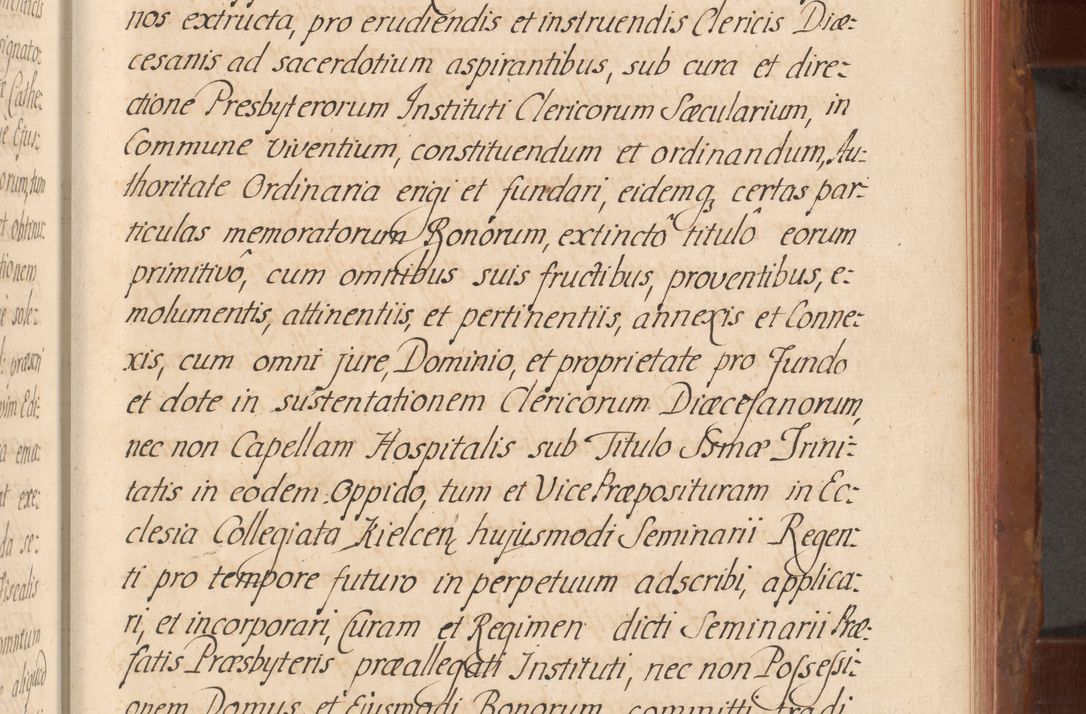 nos extructa, pro erudiendis et instruendis Clericis Diæ:
cesanis ad sacerdotium aspirantibus, sub cura et dire:
ctione Presbyterorum Instituti Clericorum Sæcularium, in
Commune viventium, constituendum et ordinandum, Au:
thoritate Ordinaria erigi et fundari, eidemq, certas par:
ticulas memoratorum Bonorum, extinctô titulô eorum
primitivô, cum omnibus suis fructibus, proventibus, e:
molumentis, attinentiis, et pertinentiis, annexis et Conne:
xis, cum omni jure, Dominio, et proprietate pro Fundo
et dote in sustentationem Clericorum Diæcesanorum,
nec non Capellam Hospitalis sub Titulo Ssmæ Trini:
tatis in eodem Oppido, tum et Vice Præposituram in Ec:
clesia Collegiata Kielcen hujusmodi Seminarii Regen:
ti pro tempore futuro in perpetuum adscribi, applica:
ri, et incorporari, Curam et Regimen dicti Seminarii Præ:
fatis Præsbyteris præallegati Instituti, nec non Possessi:
onem Domus et Ejusmodi Bonorum committi tradi
signato:
Cathe:
Ejus:
orum, tum
et obtinu:
tionem
sole:
Edi:
ema:
exe:
da se:
fiscalis
omnium
aliquod